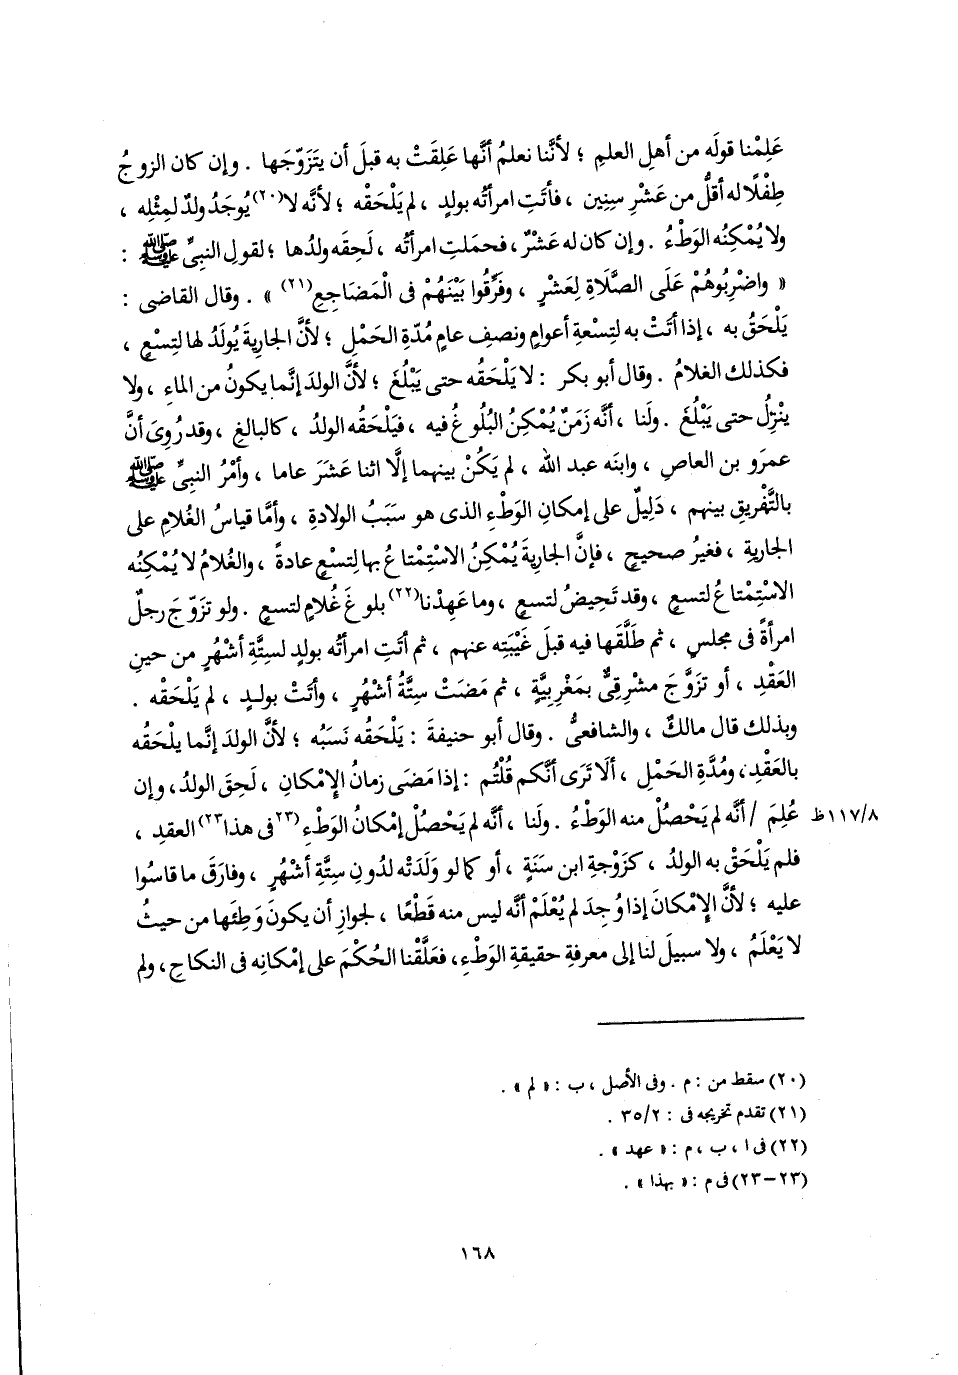 عَلِمْنا قولَه من أهلِ العلمِ ؛ لأنَّنا نعلمُ أنَّها عَلِقَتْ به قبلَ أن يتَزَوّجَها . وإن كان الزوجُ
طِفْلًا له أقلُّ من عَشْرِ سِنِين ، فأتَتِ امرأتُه بولدٍ ، لم يَلْحَقْه ؛ لأنَّه لا(٢٠) يُوجَدُ ولدٌ لمِثْلِه ،
ولا يُمْكِنُه الوَطْءُ . وإن كان له عَشْرٌ ، فحمَلتِ امرأتُه ، لَحِقَه ولدُها ؛ لقولِ النبىِّ ﷺ :
« واضْرِبُوهُمْ عَلَى الصَّلَاةِ لِعَشْرٍ ، وفَرِّقُوا بَيْنَهُمْ فى الْمَضَاجِعِ(٢١) » . وقال القاضى :
يَلْحَقُ به ، إذا أتَتْ به لتِسْعةِ أعوامٍ ونصفِ عامٍ مُدّةِ الحَمْلِ ؛ لأنَّ الجاريةَ يُولَدُ لها لتِسْعٍ ،
فكذلك الغلامُ . وقال أبو بكر : لا يَلْحَقُه حتى يَبْلُغَ ؛ لأنَّ الولدَ إنَّما يكونُ من الماءِ ، ولا
ينْزِلُ حتى يَبْلُغَ . ولَنا ، أنَّه زَمَنٌ يُمْكِنُ البُلُوغُ فيه ، فيَلْحَقُه الولدُ ، كالبالغِ ، وقد رُوِىَ أنَّ
عمرَو بن العاصِ ، وابنَه عبد الله ، لم يَكُنْ بينهما إلَّا اثنا عَشَرَ عاما ، وأمْرُ النبىِّ ﷺ
بالتَّفْريقِ بينهم ، دَلِيلٌ على إمكانِ الوَطْءِ الذى هو سَبَبُ الولادةِ ، وأمَّا قياسُ الغُلامِ على
الجاريةِ ، فغيرُ صحيحٍ ، فإنَّ الجاريةَ يُمْكِنُ الاسْتِمْتاعُ بها لِتسْعٍ عادةً ، والغُلامُ لا يُمْكِنُه
الاسْتِمْتاعُ لتسعٍ ، وقد تَحِيضُ لتسعٍ ، وما عَهِدْنا(٢٢) بلوغَ غُلامٍ لتسعٍ . ولو تزَوّجَ رجلٌ
امرأةً فى مجلسٍ ، ثم طَلَّقَها فيه قبلَ غَيْبَتِه عنهم ، ثم أتَتِ امرأتُه بولدٍ لستِّةِ أشْهُرٍ من حينِ
العَقْدِ ، أو تزَوَّجَ مشرقِىٌّ بمَغْربِيَّةٍ ، ثم مَضَتْ سِتَّةُ أشْهُرٍ ، وأتَتْ بولدٍ ، لم يَلْحَقْه .
وبذلك قال مالكٌ ، والشافعىُّ . وقال أبو حنيفةَ : يَلْحَقُه نَسَبُه ؛ لأنَّ الولدَ إنَّما يلْحَقُه
بالعَقْدِ، ومُدَّةِ الحَمْلِ ، ألَا تَرَى أنَّكم قُلْتُم : إذا مَضَى زمانُ الإمْكانِ ، لَحِقَ الولدُ، وإن
عُلِمَ / أنَّه لم يَحْصُلْ منه الوَطْءُ . ولَنا ، أنَّه لم يَحْصُلْ إمْكانُ الوَطْءِ (٢٣فى هذا٢٣) العقدِ ، ٨/١١٧ظ
فلم يَلْحَقْ به الولدُ ، كزَوْجةِ ابن سَنَةٍ ، أو كما لو وَلَدَتْه لدُونِ سِتَّةِ أشْهُرٍ ، وفارَقَ ما قاسُوا
عليه ؛ لأنَّ الإمْكانَ إذا وُجِدَ لم يُعْلَمْ أنَّه ليس منه قَطْعًا ، لجوازِ أن يكونَ وَطِئَها من حيثُ
لا يَعْلَمُ ، ولا سبيلَ لنا إلى معرفةِ حقيقةِ الوَطْءِ، فعَلَّقْنا الحُكْمَ على إمْكانِه فى النكاحِ، ولم
(٢٠) سقط من : م . وفى الأصل ، ب : « لم » .
(٢١) تقدم تخريجه فى : ٢/ ٣٥ .
(٢٢) فى ا ، ب ، م : « عهد » .
(٢٣–٢٣) فى م : « بهذا » .
١٦٨